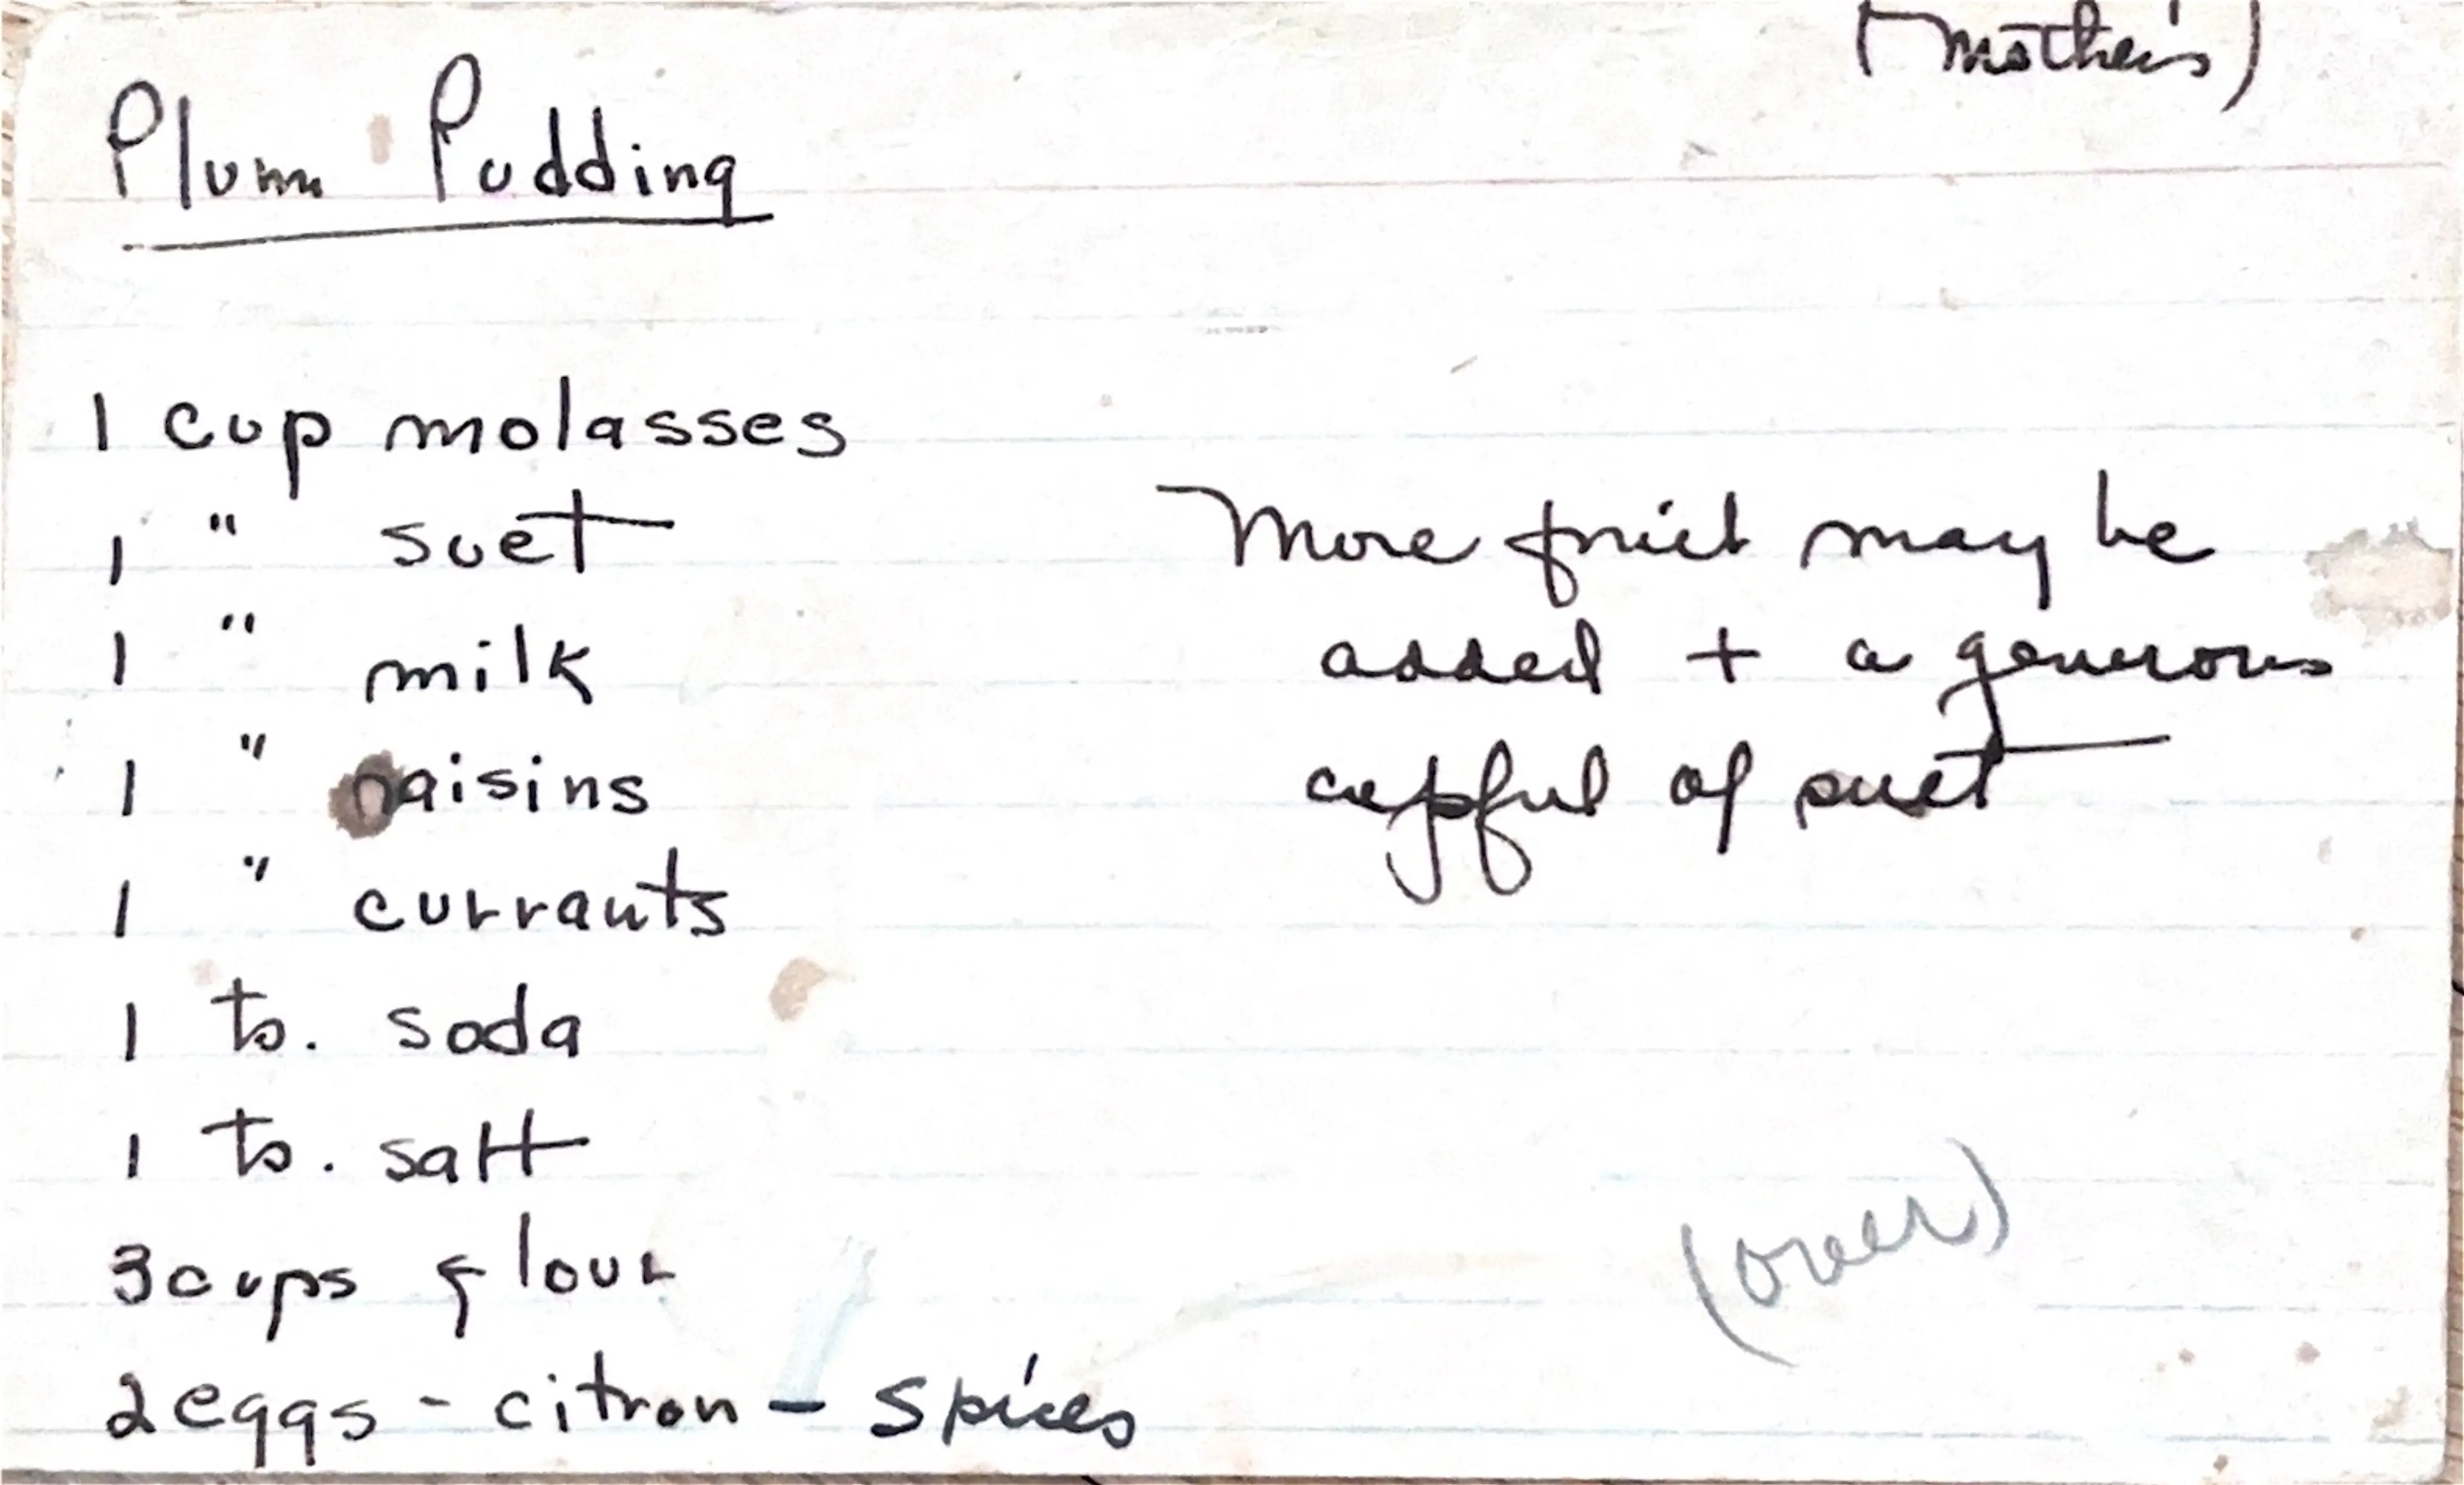 (Mother's)
Plum Pudding
1 cup molasses
1 " suet
1 " milk
1 " raisins
1 " currants
1 ts. soda
1 ts. salt
3 cups flour
2 eggs - citron - spices
More fruit may be
added + a generous
cupful of suet
(over)